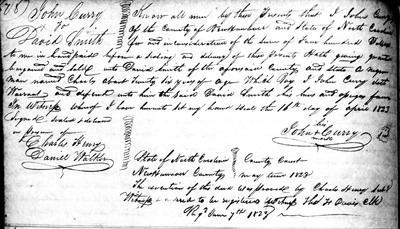 John Curry
To
David Smith
Know all men by these Presents that I John Curry
of the County of New Hanover and State of North Carolina
for and in consideration of the Sum of four hundred Dollars
to me in hand paid before sealing and delivery of these Presents Hath given grant
bargained and sold unto David Smith of the aforesaid County and State a Negro
man named Charles about Twenty six years of age Which Boy I John Curry doth
Warrant and defend unto him the said David Smith his heirs and assigns forever
In Witness whereof I have hereunto set my hand this the 16th day of april 1823
Signed sealed & delivered
in Presence of
Charles Henry
Daniel Walker
his
John + Curry
mark
State of North Carolina
New Hanover County
County Court
May term 1823
The execution of this deed was proved by Charles Henry
Witness & ordered to be registered Witness Thos. F. Davis Clk
Regd June 7th 1823